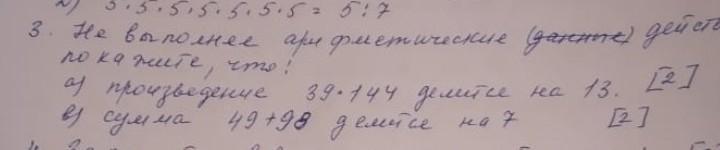 5.5.5.5.5.5.5 = 5:7
3. Не выполнее арифметические (данные) действ
покажите, что:
а) произведение 39•144 делитсе на 13. [2]
в) сумма 49+98 делитсе на 7 [2]